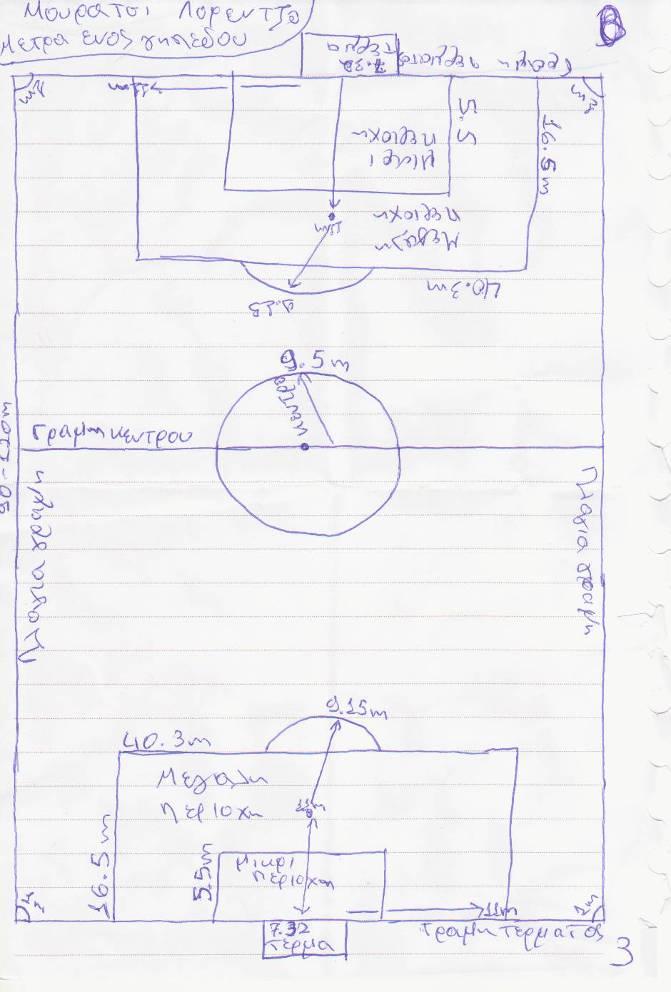 Μουρατσι Λορεντζο
Μετρα ενος γηπεδου
7.32
τερμα
Γραμη τερματος
2m
11m
5.5
16.5m
Μικρι
περιοχη
Μεγαλη
περιοχη
11m
9.15
40.3m
9.5m
κεντρο
Γραμη κεντρου
90-120m
Πλαγια γραμη
Πλαγια γραμη
9.15m
40.3m
Μεγαλη
περιοχη
11m
16.5m
5.5m
μικρι
περιοχη
11m
2m
7.32
τερμα
Γραμη τερματος
3